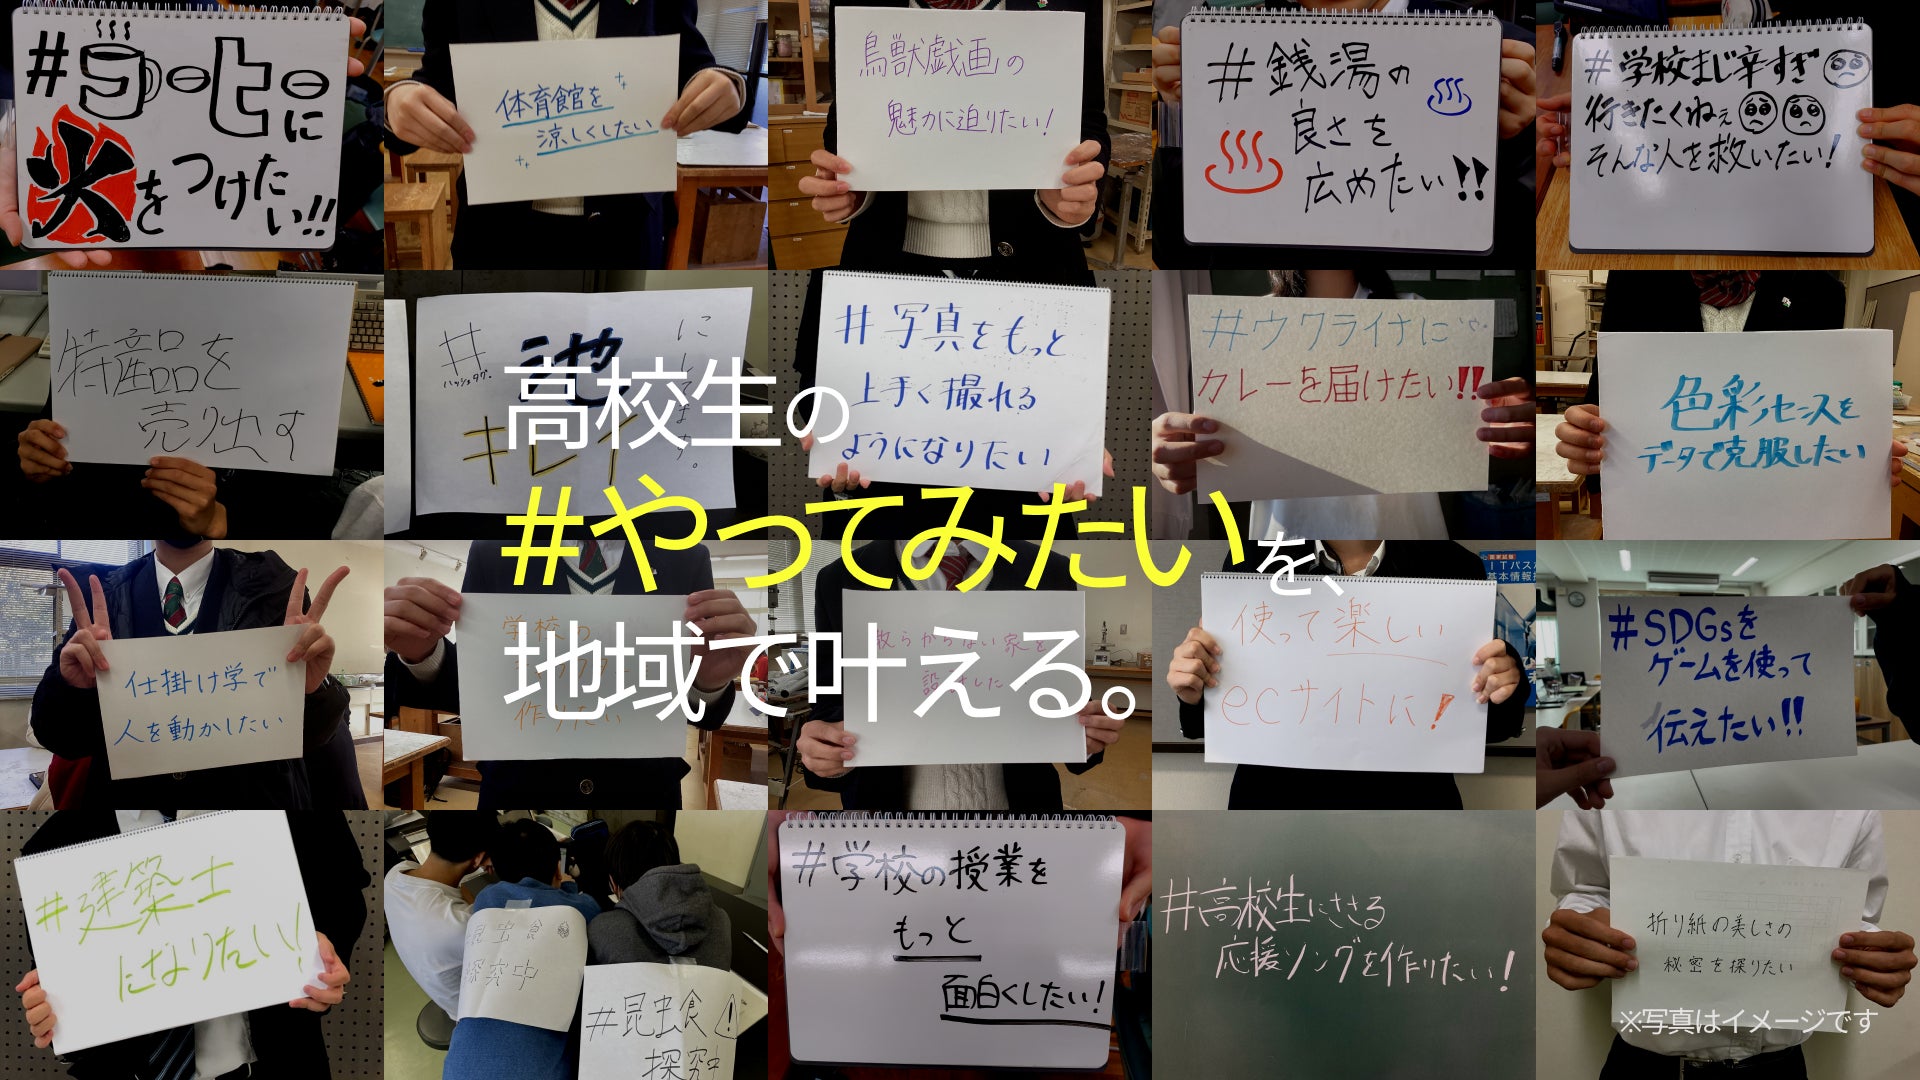 #コーヒーに
火をつけたい!!
体育館を
涼しくしたい
鳥獣戯画の
魅力に迫りたい!
#銭湯の
良さを
広めたい!!
#学校まじ辛すぎ
行きたくねぇ
そんな人を救いたい!
特産品を
売り出す
#池
ハッシュタグ
キレイ
にしてます。
#写真をもっと
上手く撮れる
ようになりたい
#ウクライナに
カレーを届けたい!!
色彩センスを
データで克服したい
高校生の
#やってみたいを、
地域で叶える。
仕掛け学で
人を動かしたい
学校の
作りたい
散らからない家を
設計した
使って楽しい
ecサイトに!
ITパス
基本情報
#SDGsを
ゲームを使って
伝えたい!!
#建築士
になりたい!
昆虫食
探究中
#昆虫食
探究中
#学校の授業を
もっと
面白くしたい!
#高校生にささる
応援ソングを作りたい!
折り紙の美しさの
秘密を探りたい
※写真はイメージです